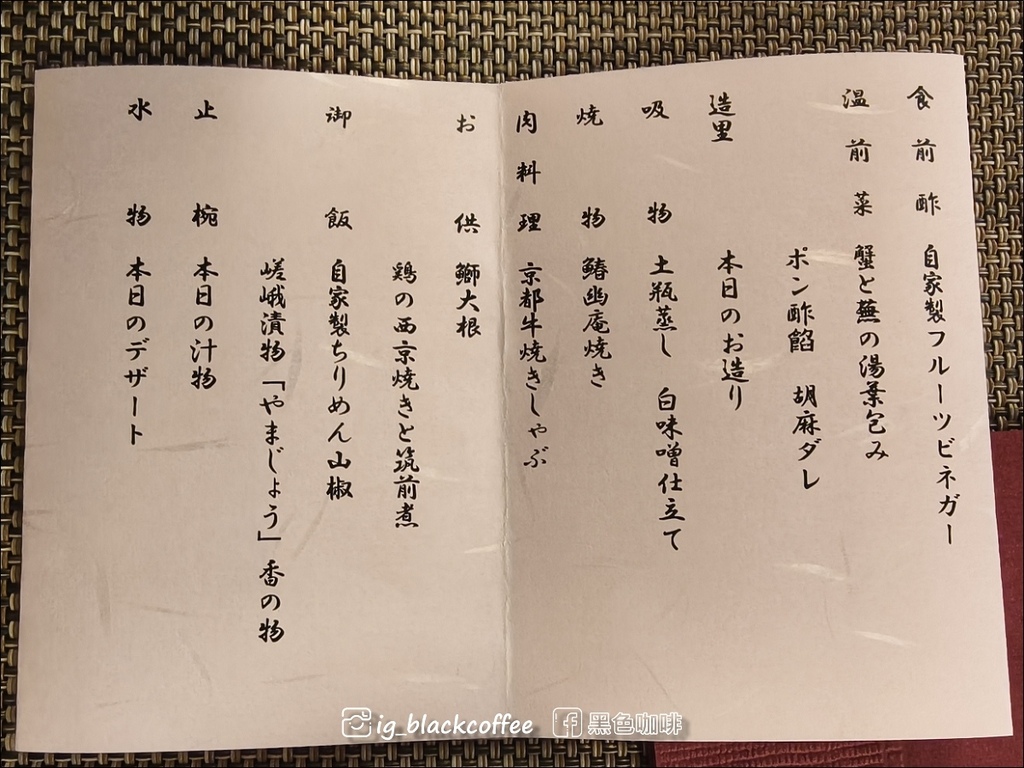 食前酢 自家製フルーツビネガー
温前菜 蟹と蕪の湯葉包み
ポン酢餡 胡麻ダレ
造里
本日のお造り
吸物 土瓶蒸し 白味噌仕立て
焼物 鰆幽庵焼き
肉料理 京都牛焼きしゃぶ
お供 鰤大根
鶏の西京焼きと筑前煮
御飯 自家製ちりめん山椒
嵯峨漬物「やまじょう」香の物
止椀 本日の汁物
水物 本日のデザート
ig_blackcoffee 黑色咖啡